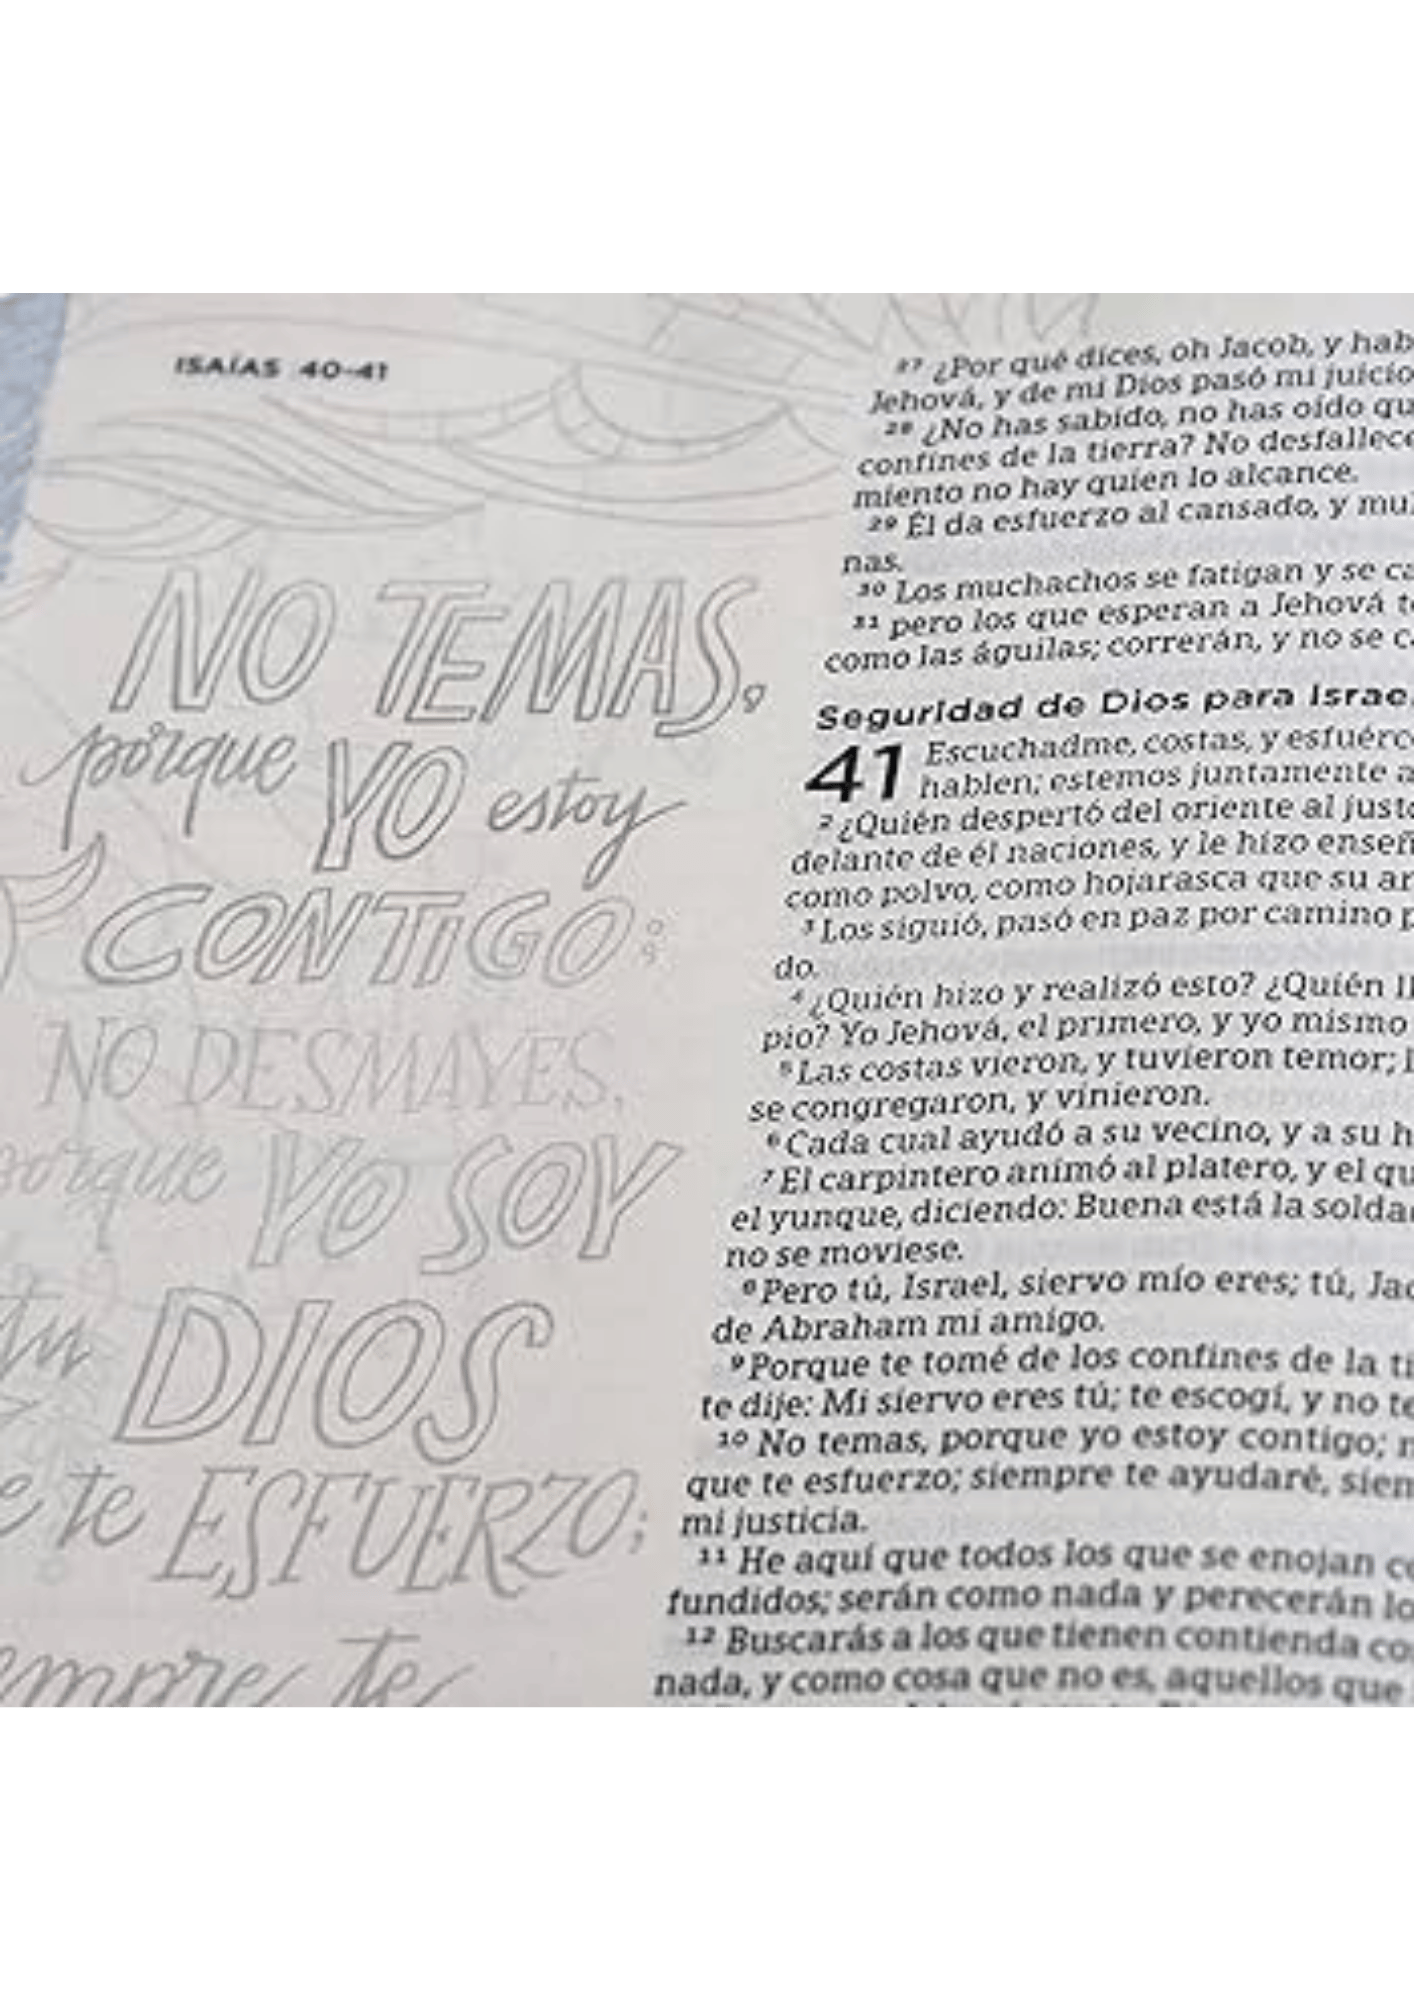 ISAÍAS 40-41
NO TEMAS,
porque YO estoy
CONTIGO;
NO DESMAYES,
porque YO SOY
tu DIOS
e te ESFUERZO;
empre te
27 ¿Por qué dices, oh Jacob, y hab
Jehová, y de mi Dios pasó mi juicio
28 ¿No has sabido, no has oído qu
confines de la tierra? No desfallece
miento no hay quien lo alcance.
29 Él da esfuerzo al cansado, y mul
nas.
30 Los muchachos se fatigan y se ca
31 pero los que esperan a Jehová te
como las águilas; correrán, y no se ca
Seguridad de Dios para Israe
41 Escuchadme, costas, y esfuérc
hablen; estemos juntamente a
2 ¿Quién despertó del oriente al justo
delante de él naciones, y le hizo enseñ
como polvo, como hojarasca que su ar
3 Los siguió, pasó en paz por camino p
do.
4 ¿Quién hizo y realizó esto? ¿Quién ll
pio? Yo Jehová, el primero, y yo mismo
5 Las costas vieron, y tuvieron temor; l
se congregaron, y vinieron.
6 Cada cual ayudó a su vecino, y a su h
7 El carpintero animó al platero, y el qu
el yunque, diciendo: Buena está la solda
no se moviese.
8 Pero tú, Israel, siervo mío eres; tú, Jac
de Abraham mi amigo.
9 Porque te tomé de los confines de la ti
te dije: Mi siervo eres tú; te escogí, y no te
10 No temas, porque yo estoy contigo; n
que te esfuerzo; siempre te ayudaré, siem
mi justicia.
11 He aquí que todos los que se enojan co
fundidos; serán como nada y perecerán lo
12 Buscarás a los que tienen contienda co
nada, y como cosa que no es, aquellos que